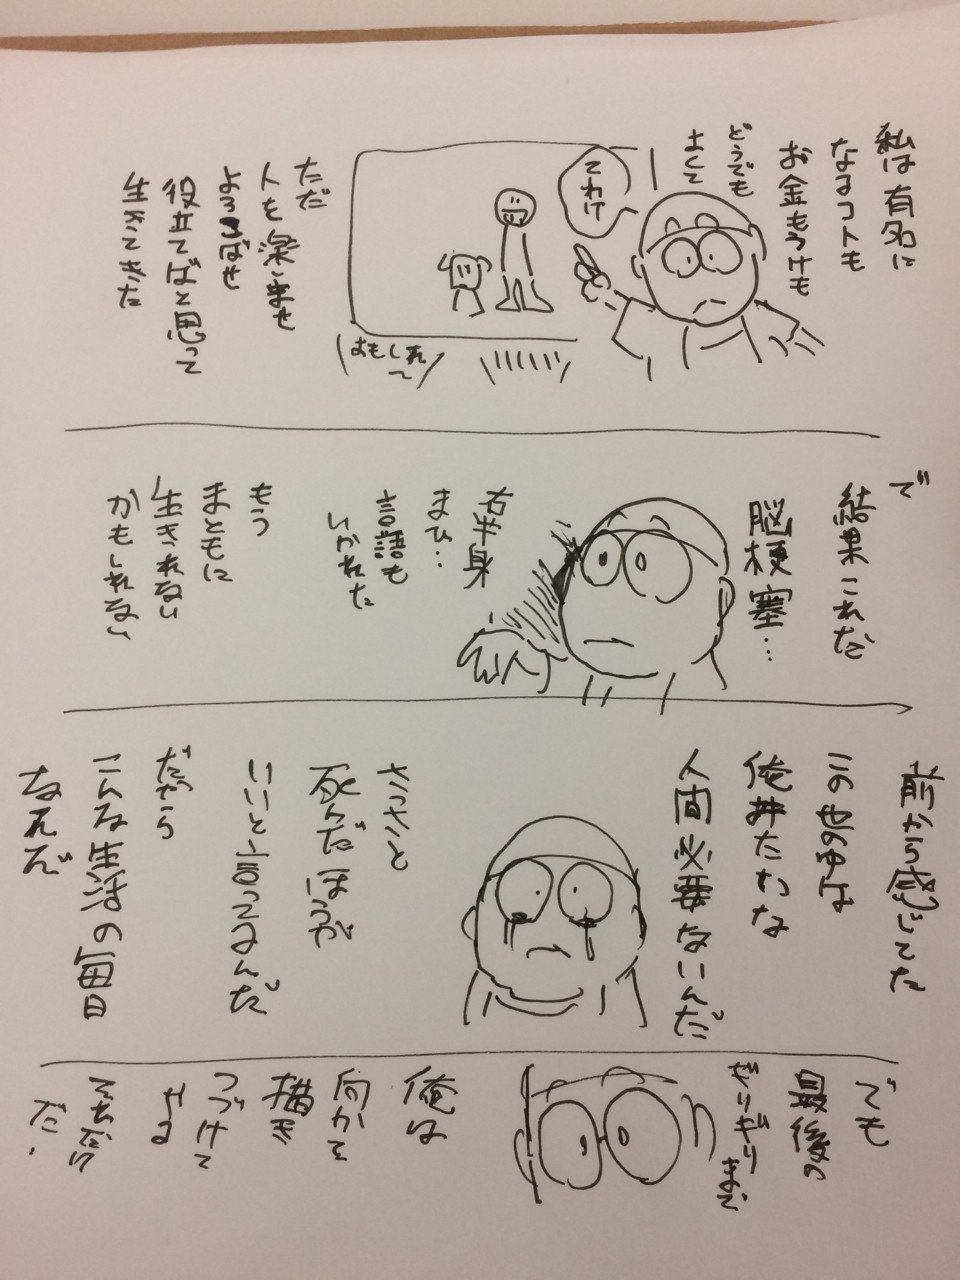 私は有名に
なるコトも
お金もうけも
どうでも
よくて
てわけ
おもしれ〜
ただ
人を楽しませ
よろこばせ
役立てばと思って
生きてきた
で
結果これだ
脳梗塞…
右半身
まひ…
言語も
いかれた
もう
まともに
生きれない
かもしれない
前から感じてた
この世の中は
俺みたいな
人間必要ないんだ
さっさと
死んだほうが
いいと言ってるんだ
だから
こんな生活の毎日
なんだ
でも
最後の
ギリギリまで
俺は
向かって
描き
つづけて
やる
それだけ
だ.